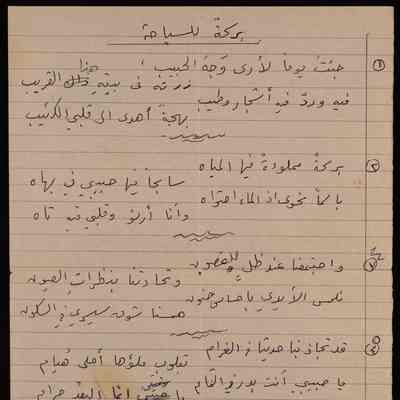 بركةٌ للسباحة
① جئتُ يوماً لأرى وَجهَ الحبيب
زرته في بيتهِ هذا القريب
فيه وردٌ فيه أشجار وطيب
بهجةً أهدى الى قلبي الكئيب
② بركةٌ مملوءةٌ فيها المياه
سابحاً فيها حبيبي في بهاه
باسماً نحوي اذ الماء احتواه
وأنا أرنو وقلبي فيه تاه
③ واجتمعنا عند ظل للغصون
وتحادثنا بنظرات العيون
نلمس الأيدي باحساس حنون
همسنا شوق سيروي في السكون
④ قد تجاذبنا حديثاً في الغرام
بقلوب ملؤها أحلى هُيام
يا حبيبي أنت بدر في التمام
البعد حرام